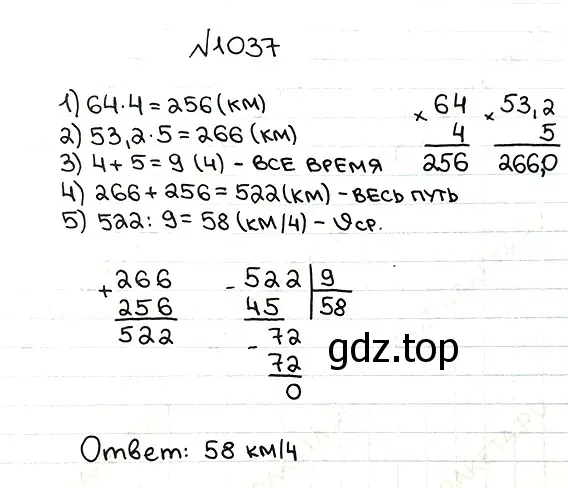 №1037
1) 64·4 = 256 (км)
2) 53,2·5 = 266 (км)
3) 4 + 5 = 9 (ч) - ВСЕ ВРЕМЯ
4) 266 + 256 = 522 (км) - ВЕСЬ ПУТЬ
5) 522 : 9 = 58 (км/ч) - υср.
× 64
4
256
× 53,2
5
266,0
+ 266
256
522
- 522 | 9
45 | 58
- 72
72
0
gdz.top
Ответ: 58 км/ч